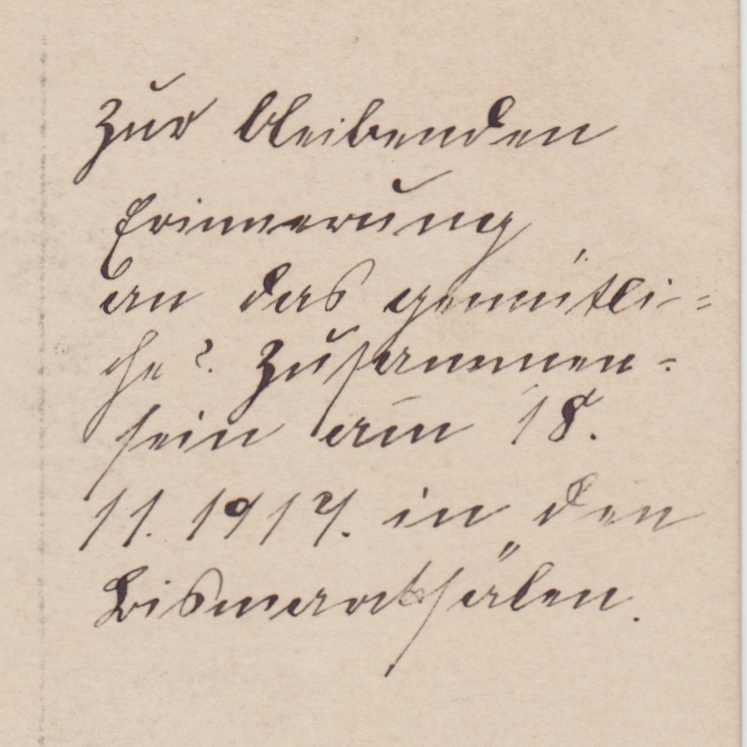 Zur bleibenden
Erinnerung
an das gemütli=
che? Zusammen=
sein am 18.
11. 1917. in den
Bismarcksälen.